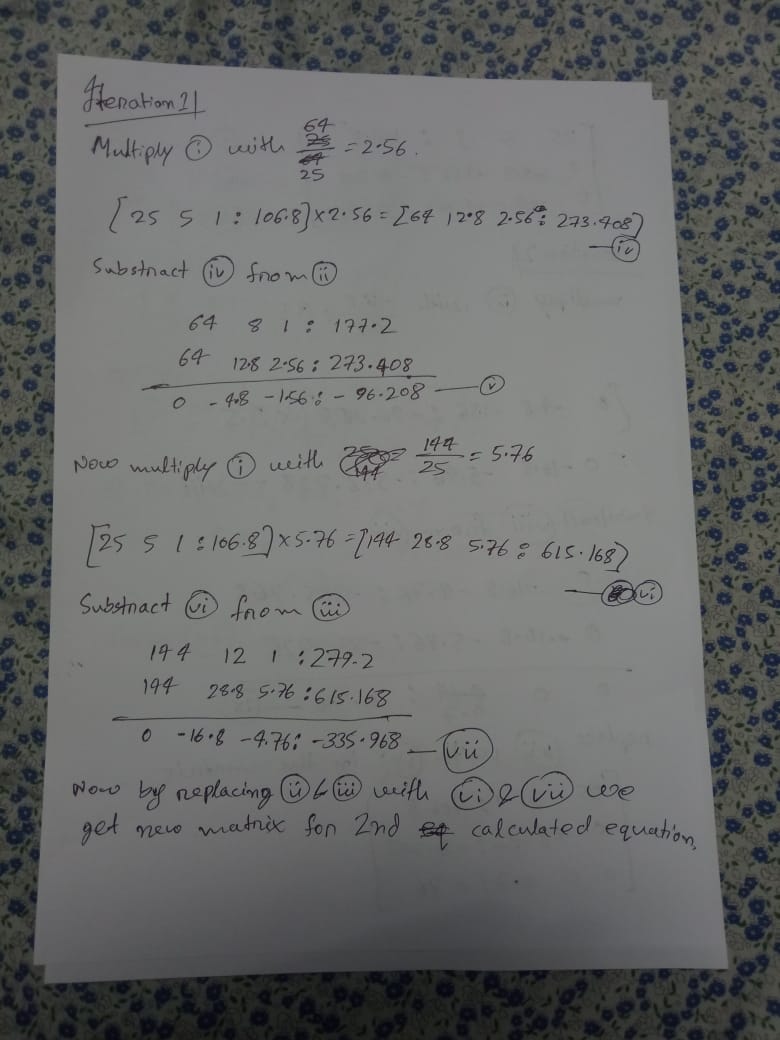 Iteration 1|
Multiply (i) with 64/25 = 2.56.
[25 5 1 : 106.8] × 2.56 = [64 12.8 2.56 : 273.408]
— (iv)
Substract (iv) from (ii)
64 8 1 : 177.2
64 12.8 2.56 : 273.408
0 -4.8 -1.56 : -96.208 — (v)
Now multiply (i) with 144/25 = 5.76
[25 5 1 : 106.8] × 5.76 = [144 28.8 5.76 : 615.168]
— (vi)
Substract (vi) from (iii)
144 12 1 : 279.2
144 28.8 5.76 : 615.168
0 -16.8 -4.76 : -335.968 — (vii)
Now by replacing (ii) & (iii) with (vi) & (vii) we
get new matrix for 2nd calculated equation,